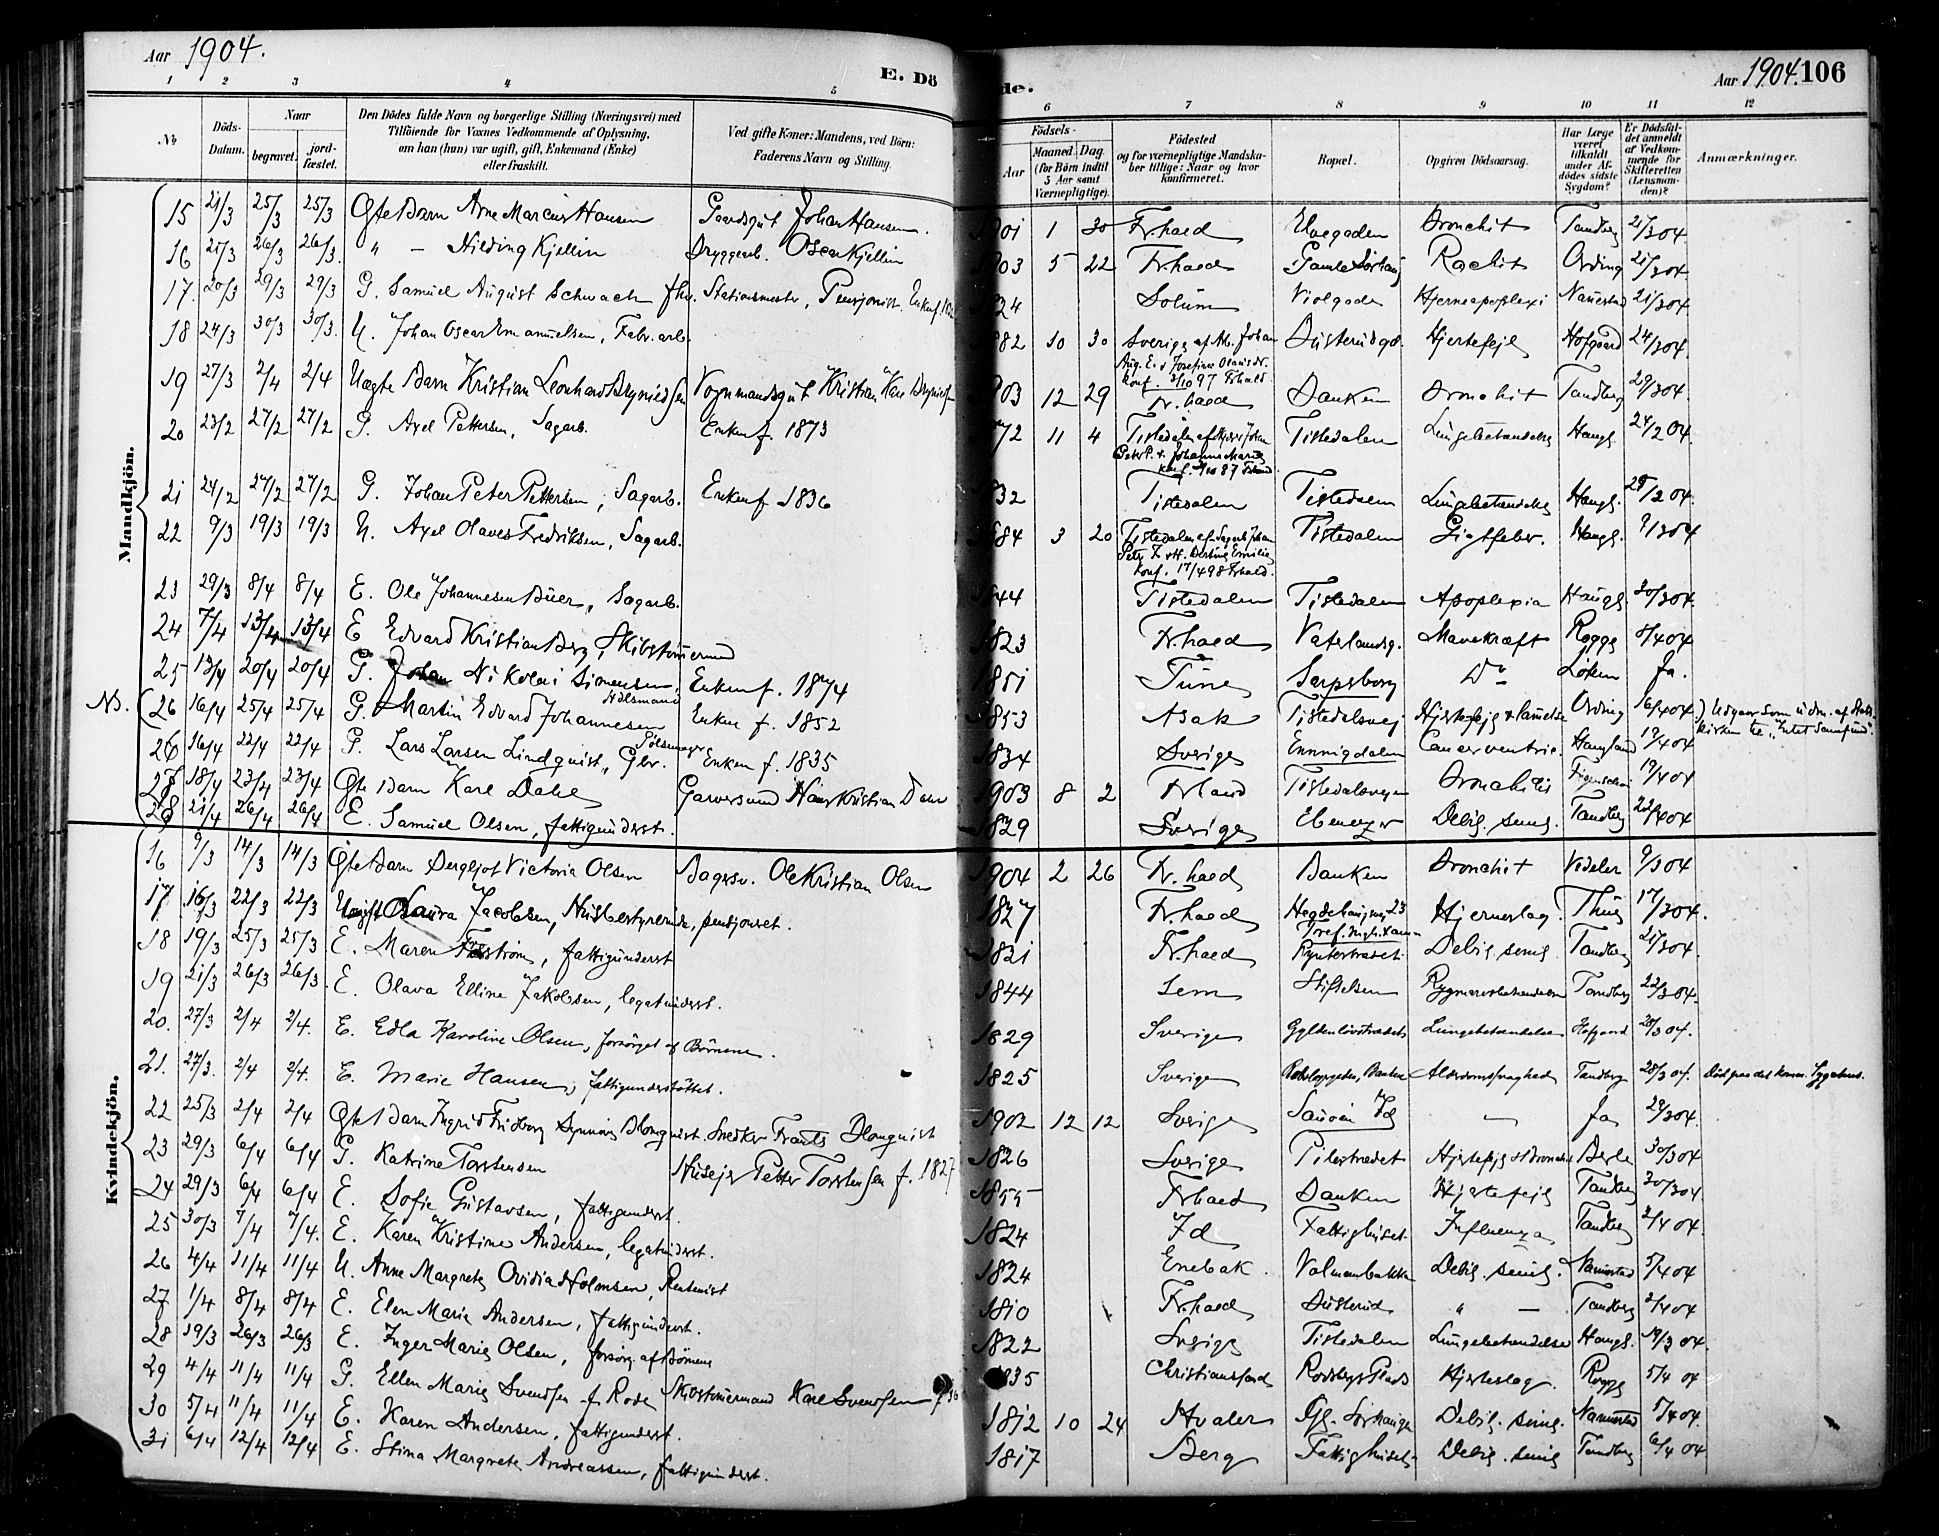 Aar 1904.
E. Dö
de.
Aar 1904. 106
1 2 3 4 5 6 7 8 9 10 11 12
No
Döds-Datum.
Naar
begravet.
jord-fæstet.
Den Dödes fulde Navn og borgerlige Stilling (Næringsvei) med
Tilföiende for Voxnes Vedkommende af Oplysning,
om han (hun) var ugift, gift, Enkemand (Enke)
eller fraskilt.
Ved gifte Koner: Mandens, ved Börn:
Faderens Navn og Stilling.
Födsels-
Aar
Maaned. Dag.
(for Börn indtil
5 Aar samt
Værnepligtige).
Födested
og for værnepligtige Mandska-
ber tillige: Naar og hvor
konfirmeret.
Bopæl.
Opgiven Dödsaarsag.
Har Læge
været
tilkaldt
under Af-
dödes sidste
Sygdom?
Er Dödsfal-
det anmeldt
af Vedkom-
mende for
Skifteretten
(Lensman-
den)?
Anmærkninger.
Mandkjön.
15 21/3 25/3 25/3 Ægte Barn Arne Marcus Hansen Johan Hansen. 1 30 Fr.hald Bronchit Tandberg 21/3 04
16 21/3 26/3 26/3. " — Hilding Kjellin Bryggearb. Oscar Kjellin 5 22 Fr.hald Rachit Ording 21/3 04
17. 20/3 29/3 29/3 G. Samuel August Schwach fhv. Stationsmester, Pensjonist. Solum Violgaden Hjerneapoplexi 21/3 04
18 24/3 30/3 30/3. U. Johan Oscar Emanuelsen, Fabr.arb. 10 30 Sverige af Ab. Johan
Aug. E. & Josefine
konf. 3/10 97 Frhald. Hjertefejl Hofgaard 24/3 04
19 27/3 2/4 2/4 Uægte Barn Kristian Leonhard Vognmandsgut Kristian 12 29 Fr.hald Banken Bronchit Tandberg 29/3 04
20 23/2 27/2 27/2 G. Axel Pettersen, Sagarb. Enke f. 1873 11 4 Tistedalen
Peter P. & Johanne Marie Tistedalen Lungebetændelse Haugl. 24/2 04
21 24/2 27/2 27/2 G. Johan Peter Pettersen, Sagarb. Enke f. 1836 Tistedalen Tistedalen Lungebetændelse Haugl.
22 9/3 19/3 19/3 U. Axel Olaves Fredriksen, Sagarb. 3 20 Tistedalen af Sagarb. Johan
Konf. 17/4 98 Frhald. Tistedalen Gigtfeber. Haugl. 9/3 04
23 29/3 8/4 8/4 E. Ole Johannesen Buer, Sagarb. Tistedalen Tistedalen Apoplexia Haugl. 30/3 04.
24 7/4 13/4 13/4 E Edvard Kristian Berg, Skibstømmermand 1823 Fr.hald Vaterlandsg. Mavekræft Rogge 8/4 04
25 13/4 20/4 20/4 G. Johan Nikolai Simensen, Enke f. 1874 1851 Tune Sarpsborg Do Løken Ja.
NB. (26 16/4 25/4 25/4 G. Martin Edvard Johannesen Enke f. 1852 1853 Asak Tistedalsvej Hjertefejl & Lamelse Ording 16/4 04
26 16/4 22/4 22/4 G. Lars Larsen Lindquist, Enke f. 1835 1834 Sverige Enningdalen Cancer ventric. 17/4 04
27 18/4 23/4 23/4 Ægte Barn Karl Dahl Garversvend Hans Kristian Dahl 1903 8 2 Fr.hald Tistedalsvejen Bronchitis 19/4 04
28 21/4 26/4 26/4 E. Samuel Olsen, fattigunderst. 1829 Sverige Ebenezer Debil. senil. Tandberg 22/4 04
Kvindekjön.
16 9/3 14/3 14/3 Ægte Barn Bergljot Victoria Olsen Bagersv. Ole Kristian Olsen 1904 2 26 Fr.hald Banken Bronchit Vedeler 9/3 04
17. 16/3 22/3 22/3 Ugift Laura Jacobsen, Husbestyrerinde, pensjoneret. 1827 Fr.hald Hegdehaugsv. 23 Hjerneslag. 17/3 04.
18 19/3 25/3 25/3 E. Maren Forsstrøm, fattigunderst 1821 Fr.hald Debil. senil. Tandberg 21/3 04.
19 21/3 26/3 26/3 E. Olava Elline Jakobsen, legatunderst. 1844 Sem Stiftelsen Rygmarvsbetændelse Tandberg 22/3 04.
20. 27/3 2/4 2/4. E. Edla Karoline Olsen, forsörget af Børnene. 1829 Sverige Gyldenlövstrædet Lungebetændelse Hofgaard 28/3 04.
21. 27/3. 2/4 2/4. E. Marie Hansen, fattigunderstöttet. 1825 Sverige Alderdomssvaghed Tandberg 28/3 04. Död paa det komm. Sygehus.
22 25/3 2/4 2/4 Ægte Barn Ingrid Fridborg Blomquist. Snedker Frants Blomquist 1902 12 12 Sverige Id — Ja 29/3 04.
23 29/3 6/4 6/4 G. Katrine Torstensen Husejer Petter Torstensen f. 1827 1826 Sverige Pilestrædet Hjertefejl & Bronchit Berle 30/3 04
24 29/3 6/4 6/4 E. Sofie Gustavsen, fattigunderst. 1855 Frhald Banken Hjertefejl Tandberg 30/3 04
25 30/3 7/4 7/4. E. Karen Kristine Andersen, legatunderst. 1824 Id Fattighuset Influenza Tandberg 2/4 04.
26 4/4 11/4 11/4 U. Anne Margrete Ovidia Holmsen, Rentenist 1824 Enebak. Volmanbakken Debil. senil. 5/4 04
27 1/4 8/4 8/4 E. Elen Marie Andersen, fattigunderst. 1810 Fr.hald Busterud " — Tandberg 2/4 04
28 19/3 26/3 26/3 E. Inger Marie Olsen, forsörg. af Börnene 1822 Sverige Tistedalen Lungebetændelse Haugl. 19/3 04.
29 4/4 11/4 11/4 G. Ellen Marie Svendsen f. Rode Skibstömmermand Karl Svendsen 1835 Christianssand Rødsbergs Plads Hjerteslag. Rogge 5/4 04
30 5/4 11/4 11/4 E. Karen Andersen, fattigunderst. 1812 10 24 Hvaler Gl. Sörhaugen Debil. senil. 5/4 04.
31 6/4 12/4 12/4 E. Stina Margrete Andreassen, fattigunderst. 1817 Berg Fattighuset Debil. senil Tandberg 6/4 04